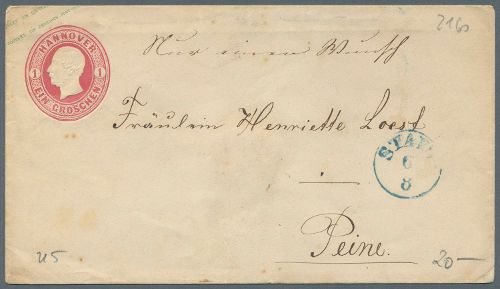 HANNOVER
1 1
EIN GROSCHEN
2160
Nur einen Wunsch
Fräulein Henriette Loest
STADE
6
8
Peine.
U5
20—